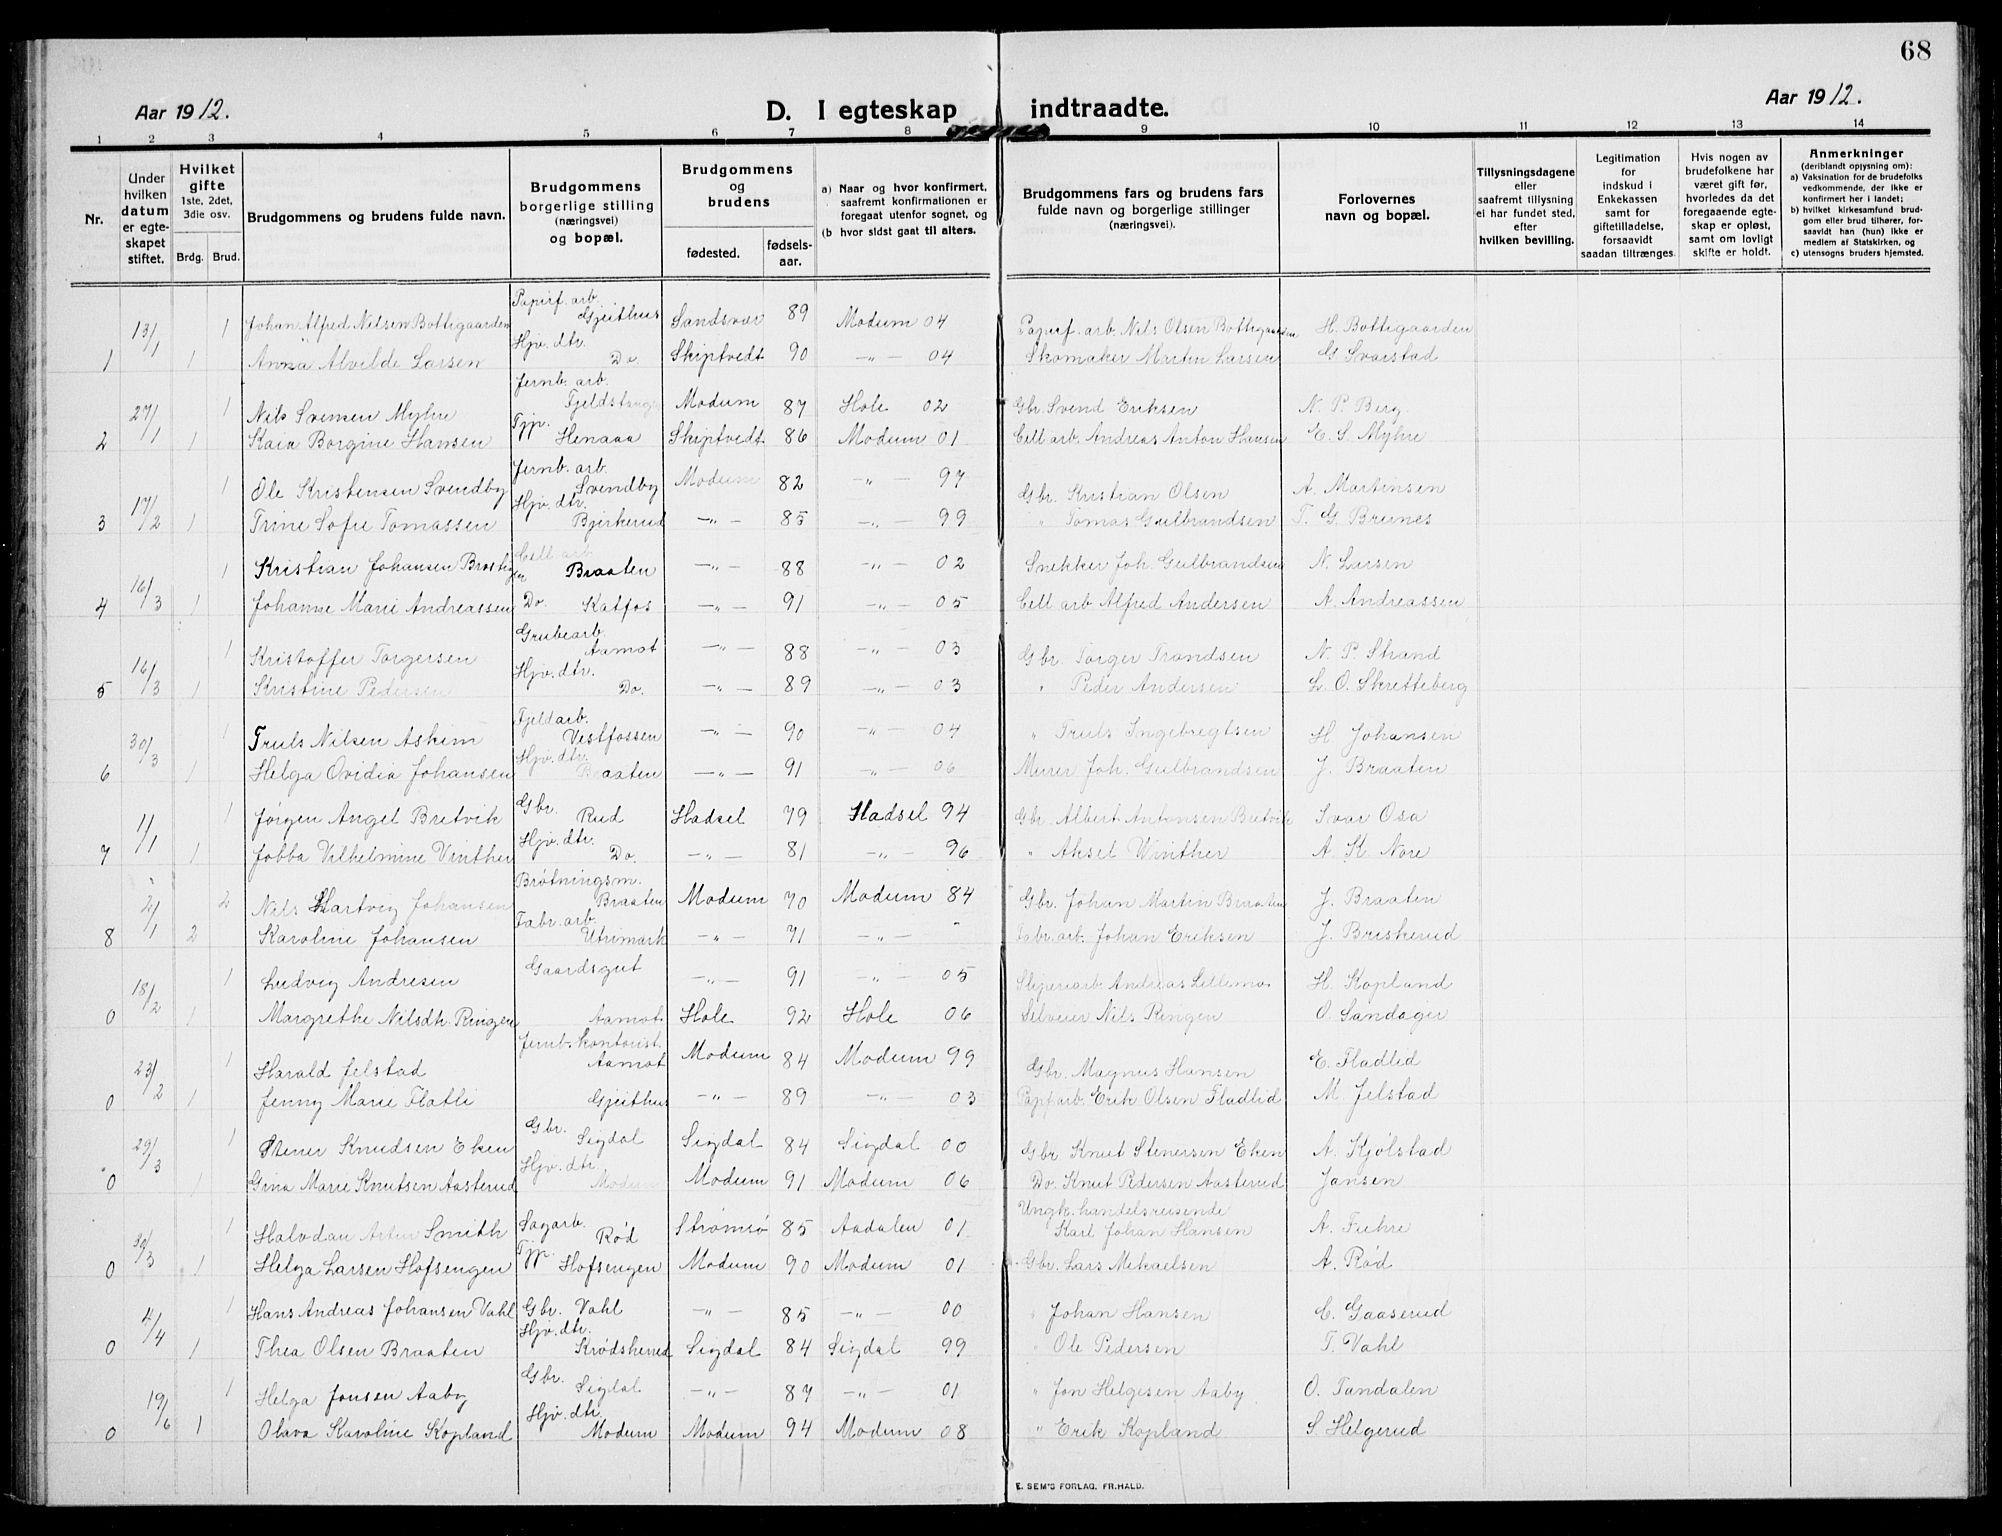 68
Aar 1912.
D. I egteskap indtraadte.
Aar 1912.
1 2 3 4 5 6 7 8 9 10 11 12 13 14
Nr.
Under hvilken datum er egteskapet stiftet.
Hvilket gifte 1ste, 2det, 3die osv.
Brdg. Brud.
Brudgommens og brudens fulde navn.
Brudgommens borgerlige stilling (næringsvei) og bopæl.
Brudgommens og brudens
fødested. fødselsaar.
a) Naar og hvor konfirmert, saafremt konfirmationen er foregaat utenfor sognet, og
(b hvor sidst gaat til alters.
Brudgommens fars og brudens fars fulde navn og borgerlige stillinger (næringsvei).
Forlovernes navn og bopæl.
Tillysningsdagene eller saafremt tillysning ei har fundet sted, efter hvilken bevilling.
Legitimation for indskud i Enkekassen samt for giftetilladelse, forsaavidt saadan tiltrænges.
Hvis nogen av brudefolkene har været gift før, hvorledes da det foregaaende egteskap er opløst, samt om lovligt skifte er holdt.
Anmerkninger
(deriblandt opysning om):
a) Vaksination for de brudefolks vedkommende, der ikke er konfirmert her i landet;
b) hvilket kirkesamfund brudgom eller brud tilhører, forsaavidt han (hun) ikke er medlem af Statskirken, og
c) utensogns bruders hjemsted.
13/1 1 Johan Alfred Nilsen Bottegaarden Papirf. arb. Gjeithus Sandsvær 89 Modum 04 Papirf. arb. Nils Olsen Bottegaarden H. Bottegaarden
1 1 Anna Alvilde Larsen Hjv. dtr. Do. Skiptvedt 90 —"— 04 Skomaker Martin Larsen G. Svarstad
27/1 1 Nils Svensen Myhre Jernb. arb. Modum 87 Hole 02 Gbr. Svend Eriksen N. P. Berg
2 1 Kaia Borgine Hansen Tjp. Henaaa Skiptvedt 86 Modum 01 Cell arb. Andreas Anton Hansen E. S. Myhre
17/2 1 Ole Kristensen Svendby Jernb. arb. Svendby Modum 82 —"— 97 Gbr. Kristian Olsen A. Martinsen
3 1 Trine Sofie Tomassen Hjv. dtr. Bjerkerud —"— 85 —"— 99 " Tomas Gulbrandsen T. G. Brunes
16/3 1 Kristian Johansen Cell arb Braaten —"— 88 —"— 02 Snekker Joh. Gulbrandsen N. Larsen
4 1 Johanne Marie Andreassen Do. Katfos —"— 91 —"— 05 Cell arb Alfred Andersen A. Andreassen
16/3 1 Kristoffer Torgersen Grubearb. Aamot —"— 88 —"— 03 Gbr. Torger Trondsen N. P. Strand
5 1 Kristine Pedersen Hjv. dtr. Do. —"— 89 —"— 03 " Peder Andersen L. O. Skretteberg
30/3 1 Truls Nilsen Askim Fjeldarb. Vestfossen —"— 90 —"— 04 " Truls Ingebregtsen H. Johansen
6 1 Helga Ovidia Johansen Hjv. dtr. Braaten —"— 91 —"— 06 Murer Joh. Gulbrandsen J. Braaten
1/1 1 Jørgen Angel Bretvik Gbr. Rud Hadsel 79 Hadsel 94 Gbr. Albert Antonsen Bretvik Ivar Osa
7 1 Jobba Vilhelmine Vinther Hjv. dtr. Do. —"— 81 —"— 96 " Aksel Winther A. K. Nore
2/1 2 Nils Hartvig Johansen Brøtningsm. Braaten Modum 70 Modum 84 Gbr. Johan Martin Braaten J. Braaten
8 2 Karoline Johansen Fabr. arb. Utrimark —"— 71 —"— - Fabr. arb. Johan Eriksen J. Briskerud
18/2 1 Ludvig Andresen Gaardsgut —"— 91 —"— 05 Sliperiarb. Andreas Lillemo H. Kopland
0 1 Margrethe Nilsdtr. Ringen Aamot Hole 92 Hole 06 Selveier Nils Ringen O. Sandager
23/2 1 Harald Jelstad Jernb. kontorist. Aamot Modum 84 Modum 99 Gbr. Magnus Hansen E. Fladlid
0 1 Jenny Marie Flatli Gjeithus —"— 89 —"— 03 Papf arb. Erik Olsen Fladlid M. Jelstad
29/3 1 Stener Knudsen Eken Gbr. Sigdal Sigdal 84 Sigdal 00 Gbr Knut Stenersen Eken A. Kjølstad
0 1 Gina Marie Knutsen Aasterud Hjv. dtr. Modum Modum 91 Modum 06 Do. Knut Pedersen Aasterud Jansen
30/3 1 Halvdan Smith Sagarb. Rød Strømsø 85 Aadalen 01 Ungk. handelsreisende Karl Johan Hansen A. Fuhre
0 1 Helga Larsen Hofsengen Tjp. Hofsengen Modum 90 Modum 01 Gbr. Lars Mikaelsen A. Rød
4/4 1 Hans Andreas Johansen Vahl Gbr. Vahl —"— 85 —"— 00 " Johan Hansen C. Gaaserud
0 1 Thea Olsen Braaten Hjv. dtr. Krødsherred Sigdal 84 Sigdal 99 " Ole Pedersen T. Vahl
19/6 1 Helga Jonsen Aaby Gbr. Sigdal —"— 87 —"— 01 " Jon Helgesen Aaby O. Tandalen
0 1 Olava Karoline Kopland Hjv. dtr. Modum Modum 94 Modum 08 " Erik Kopland S. Helgerud
E. SEM'S FORLAG. FR.HALD.